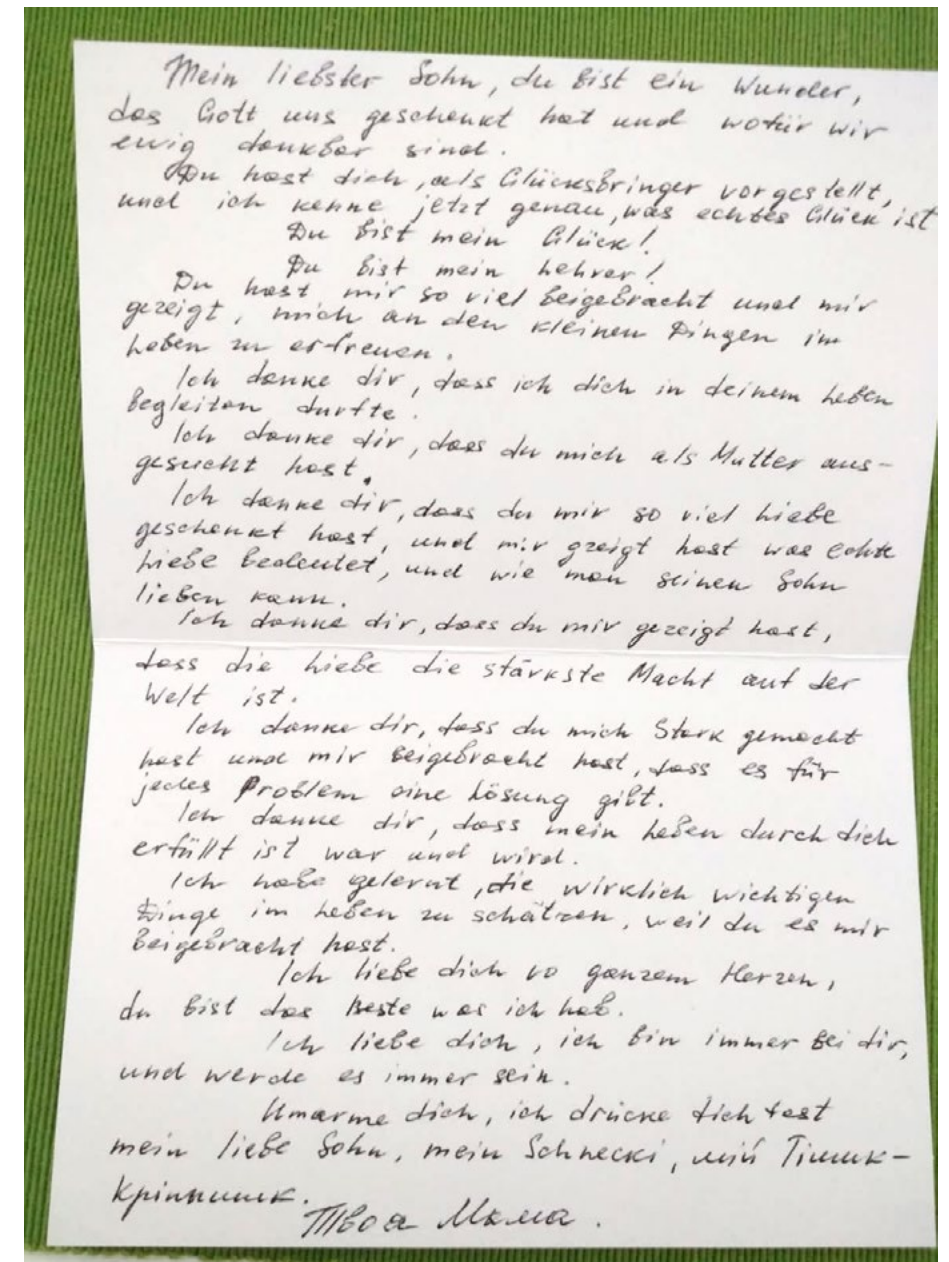 Mein liebster Sohn, du bist ein Wunder,
das Gott uns geschenkt hat und wofür wir
ewig dankbar sind.
Du hast dich, als Glücksbringer vorgestellt,
und ich kenne jetzt genau, was echtes Glück ist
Du bist mein Glück!
Du bist mein Lehrer!
Du hast mir so viel beigebracht und mir
gezeigt, mich an den kleinen Dingen im
Leben zu erfreuen.
Ich danke dir, dass ich dich in deinem Leben
begleiten durfte.
Ich danke dir, dass du mich als Mutter aus-
gesucht hast.
Ich danke dir, dass du mir so viel Liebe
geschenkt hast, und mir gzeigt hast was echte
Liebe bedeutet, und wie man seinen Sohn
lieben kann.
Ich danke dir, dass du mir gezeigt hast,
dass die Liebe die stärkste Macht auf der
Welt ist.
Ich danke dir, dass du mich Stark gemacht
hast und mir beigebracht hast, dass es für
jedes Problem eine Lösung gibt.
Ich danke dir, dass mein Leben durch dich
erfüllt ist war und wird.
Ich habe gelernt, die wirklich wichtigen
Dinge im Leben zu schätzen, weil du es mir
beigebracht hast.
Ich liebe dich vo ganzem Herzen,
du bist das Beste was ich hab.
Ich liebe dich, ich bin immer bei dir,
und werde es immer sein.
Umarme dich, ich drücke dich fest
mein liebe Sohn, mein Schnecki, мій Тімик-
Твоя Мама.